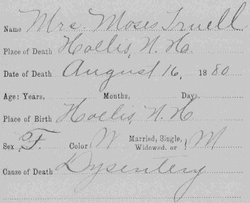 Name Mrs. Moses Truell
Place of Death Hollis, N. H.
Date of Death August 16, 1880
Age: Years. Months, Days.
Place of Birth Hollis, N. H
Sex F. Color W Married, Single, Widowed, or M
Cause of Death Dysentery